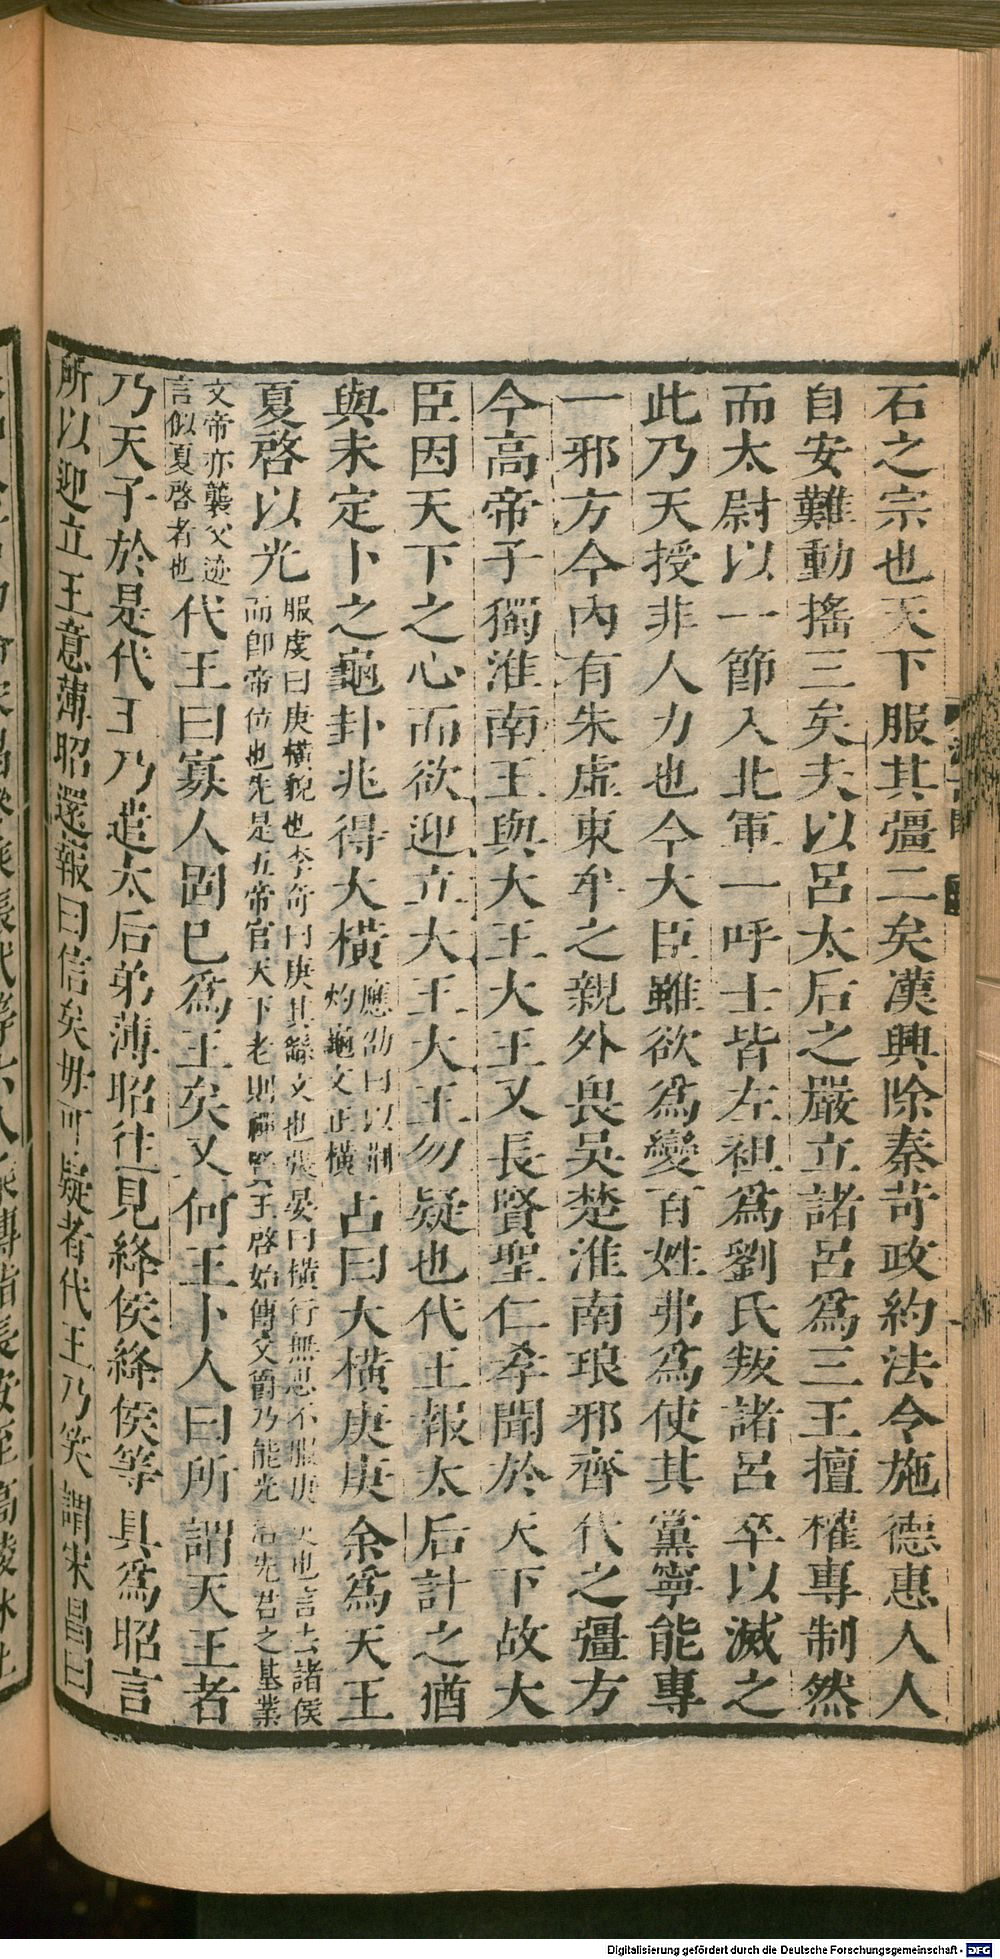 石之宗也天下服其彊二矣漢興除秦苛政約法令施德惠人人
自安難動搖三矣夫以呂太后之嚴立諸呂爲三王擅權專制然
而太尉以一節入北軍一呼士皆左袒爲劉氏叛諸呂卒以滅之
此乃天授非人力也今大臣雖欲爲變百姓弗爲使其黨寧能專
一邪方今內有朱虛東牟之親外畏吳楚淮南琅邪齊代之彊方
今高帝子獨淮南王與大王大王又長賢聖仁孝聞於天下故大
臣因天下之心而欲迎立大王大王勿疑也代王報太后計之猶
與未定卜之龜卦兆得大橫應劭曰以荆灼龜文正橫占曰大橫庚庚余爲天王
夏啓以光服虔曰庚橫貌也李奇曰庚其繇文也張晏曰橫行無思不服庚更也言去諸侯而卽帝位也先是五帝官天下老則禪賢王啓始傳父爵乃能光治先君之基業
文帝亦襲父迹言似夏啓者也代王曰寡人固已爲王矣又何王卜人曰所謂天王者
乃天子於是代王乃遣太后弟薄昭往見絳侯絳侯等具爲昭言
所以迎立王意薄昭還報曰信矣毋可疑者代王乃笑謂宋昌曰
Digitalisierung gefördert durch die Deutsche Forschungsgemeinschaft - DFG